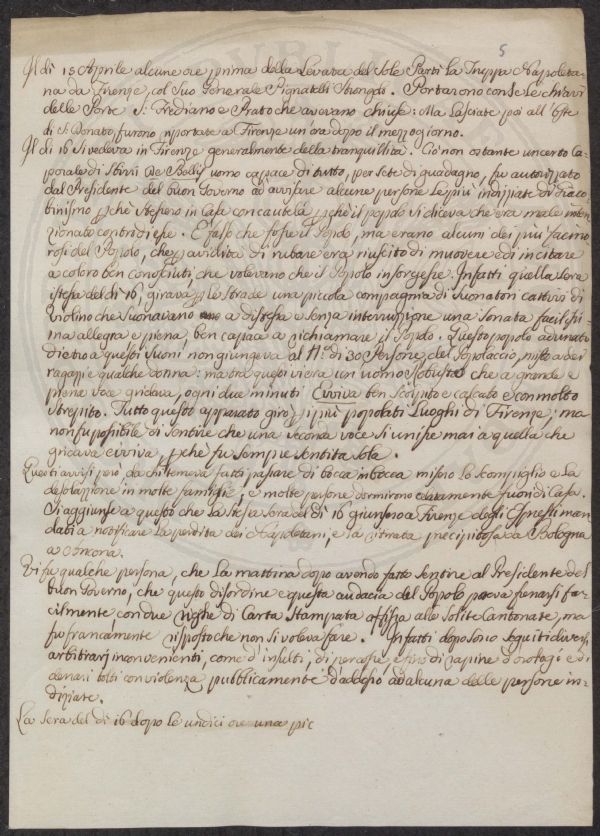 5
Il dì 15 Aprile alcune ore prima della Levata del Sole Partì la Truppa Napoleta-
na da Firenze, col suo Generale Pignatelli Strongoli. Portarono con se le chiavi
delle Porte S. Frediano e Prato che avevano chiuse: Ma lasciate poi all'Oste
di S. Donato, furono riportate a Firenze un ora dopo il mezzogiorno.
Il di 16 si vedeva in Firenze generalmente della tranquillità. Ciò non ostante un certo Ca-
porale di Sbirri De Bollis uomo capace di tutto, per sete di guadagno, fu autorizzato
dal Presidente del buon Governo ad avvisare alcune persone le più indiziate di Giaco-
binismo pchè stessero in Casa con cautela pchè il popolo si diceva che era male inten-
zionato contro di esse. È falso che fosse il Popolo, ma erano alcuni dei più facino-
rosi del Popolo, che p avidità di rubare era riuscito di muovere ed incitare
a coloro ben conosciuti, che volevano che il Popolo insorgesse. Infatti quella sera
istessa del dì 16, girava p le strade una piccola compagnia di Suonatori cattivi di
Violino che suonavano a distesa e senza interruzione una Sonata facilissi-
ma allegra e piena, ben capace a richiamare il Popolo. Questo popolo adunato
dietro a questi suoni non giungeva al N. di 30 Persone del Popolaccio, misto a dei
ragazzi e qualche donna: ma tra questi vi era un uomo robusto che a grande e
piena voce gridava, ogni due minuti Evviva ben scolpito e calcato e con molto
strepito. Tutto questo apparato girò p i più popolati Luoghi di Firenze; ma
non fu possibile di sentire che una seconda voce si unisse mai a quella che
gridava evviva, pchè fu sempre sentita sola.
Questi avvisi però da chi temeva fatti passare di bocca in bocca misero lo scompiglio e la
desolazione in molte famiglie, e molte persone dormirono celatamente fuori di Casa.
Si aggiunse a questo che la stessa sera del dì 16 giunsero a Firenze degli Espressi man-
dati a notificare la perdita dei Napoletani, e la ritirata precipitosa da Bologna
a Ancona.
Vi fu qualche persona, che la mattina dopo avendo fatto sentire al Presidente del
buon Governo, che questo disordine e questa audacia del Popolo poteva frenarsi fa-
cilmente, con due righe di Carta Stampata affissa alle solite Cantonate, ma
fu francamente risposto che non si voleva fare. Infatti dopo sono seguiti diversi
arbitrarj inconvenienti, come d'insulti, di percosse, e fino di rapine d'orologi e di
denari tolti con violenza pubblicamente d'addosso, ad alcuna delle persone in-
diziate.
La sera del di 16 dopo le undici ore una pic